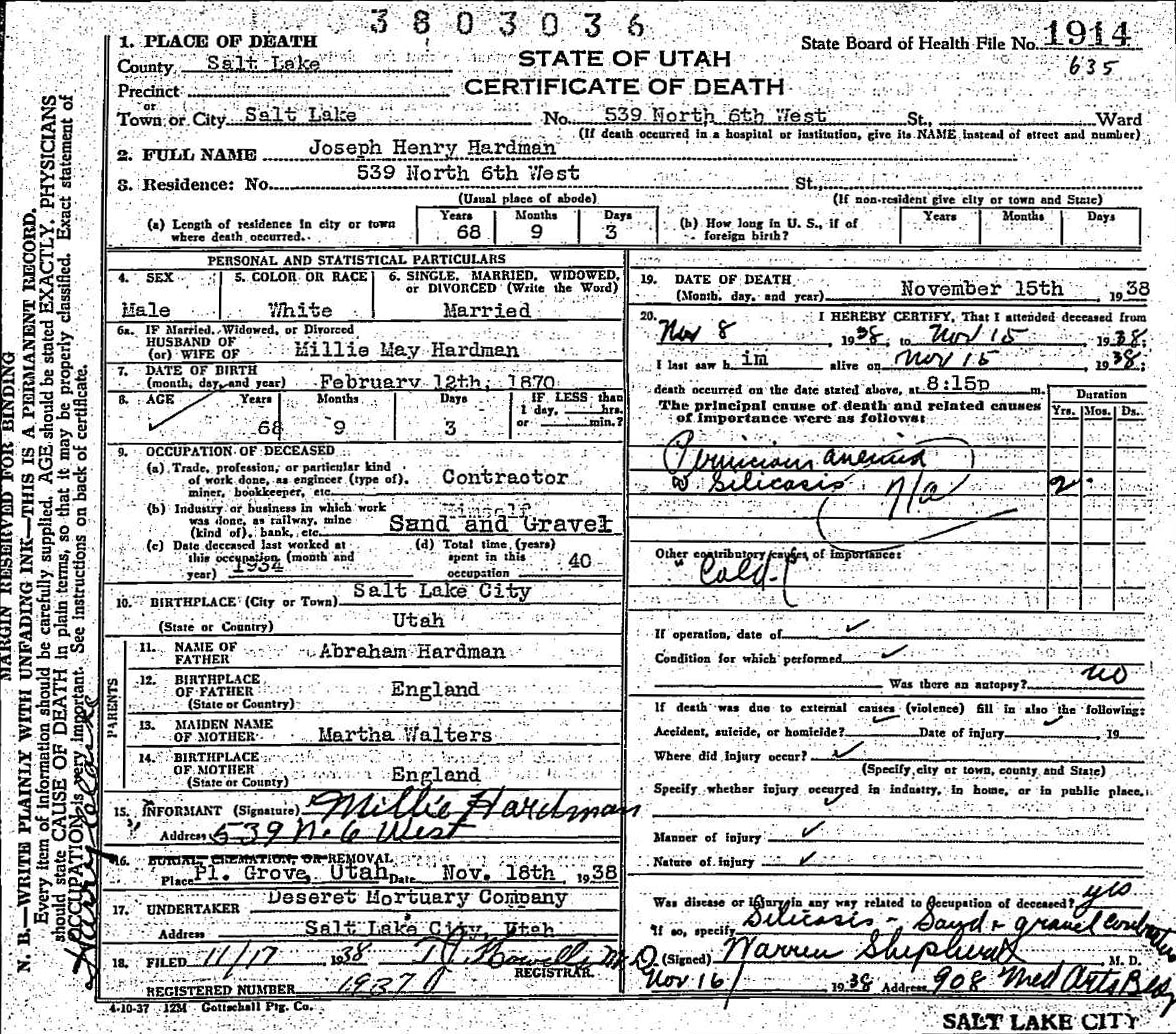 3803036
1. PLACE OF DEATH
County Salt Lake
Precinct
or
Town or City Salt Lake No. 539 North 6th West St., Ward
(If death occurred in a hospital or institution, give its NAME instead of street and number)
STATE OF UTAH
CERTIFICATE OF DEATH
State Board of Health File No. 1914
635
2. FULL NAME Joseph Henry Hardman
3. Residence: No. 539 North 6th West St.,
(Usual place of abode) (If non-resident give city or town and State)
(a) Length of residence in city or town where death occurred.. Years 68 Months 9 Days 3
(b) How long in U. S., if of foreign birth? Years Months Days
PERSONAL AND STATISTICAL PARTICULARS
4. SEX Male
5. COLOR OR RACE White
6. SINGLE, MARRIED, WIDOWED, or DIVORCED (Write the Word) Married
6a. IF Married, Widowed, or Divorced
HUSBAND OF
(or) WIFE OF Millie May Hardman
7. DATE OF BIRTH
(month, day, and year) February 12th, 1870
8. AGE Years 68 Months 9 Days 3 IF LESS than 1 day, hrs. or min.?
9. OCCUPATION OF DECEASED
(a) Trade, profession, or particular kind
of work done, as engineer (type of),
miner, bookkeeper, etc. Contractor
(b) Industry or business in which work
was done, as railway, mine
(kind of), bank, etc. Himself
Sand and Gravel
(c) Date deceased last worked at
this occupation (month and
year) 1934
(d) Total time (years)
spent in this
occupation 40
10. BIRTHPLACE (City or Town) Salt Lake City
(State or Country) Utah
PARENTS
11. NAME OF
FATHER Abraham Hardman
12. BIRTHPLACE
OF FATHER England
(State or Country)
13. MAIDEN NAME
OF MOTHER Martha Walters
14. BIRTHPLACE
OF MOTHER England
(State or Country)
15. INFORMANT (Signature) Millie Hardman
Address 539 N. 6 West
16. BURIAL, CREMATION, OR REMOVAL
Place Pl. Grove, Utah Date Nov. 18th 1938
17. UNDERTAKER Deseret Mortuary Company
Address Salt Lake City, Utah
18. FILED 11/17 1938
REGISTRAR.
REGISTERED NUMBER 1937
4-10-37 123M Gottschall Ptg. Co.
19. DATE OF DEATH
(Month, day, and year) November 15th 1938
20. I HEREBY CERTIFY, That I attended deceased from
Nov 8 1938, to Nov 15 1938;
I last saw h im alive on Nov 15 1938;
death occurred on the date stated above, at 8:15p m.
The principal cause of death and related causes
of importance were as follows:
Duration
Yrs. Mos. Ds.
Pernicious anemia
Silicosis n/a 2
Other contributory causes of importance:
"Cold"
If operation, date of
Condition for which performed
Was there an autopsy? no
If death was due to external causes (violence) fill in also the following:
Accident, suicide, or homicide? Date of injury , 19
Where did injury occur?
(Specify city or town, county and State)
Specify whether injury occurred in industry, in home, or in public place.
Manner of injury
Nature of injury
Was disease or injury in any way related to occupation of deceased? yes
If so, specify Silicosis - Sand & gravel contractor
(Signed) Warren Shepherd M. D.
Nov 16 1938 Address 908 Med Arts Bldg
SALT LAKE CITY
MARGIN RESERVED FOR BINDING
N. B.—WRITE PLAINLY WITH UNFADING INK—THIS IS A PERMANENT RECORD.
Every item of information should be carefully supplied. AGE should be stated EXACTLY. PHYSICIANS
should state CAUSE OF DEATH in plain terms, so that it may be properly classified. Exact statement of
OCCUPATION is very important. See instructions on back of certificate.